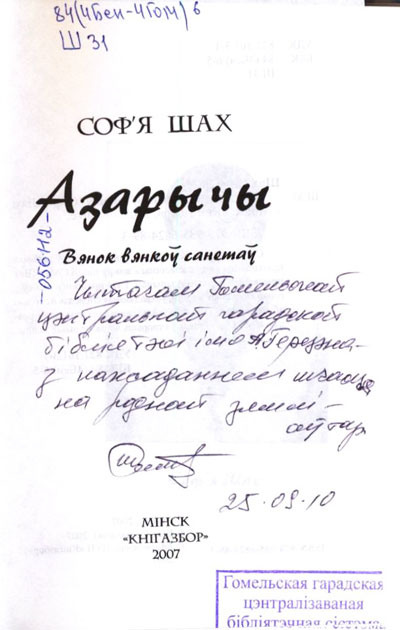 84(4Беи-4Гом)6
Ш 31
СОФ'Я ШАХ
Азарычы
Вянок вянкоў санетаў
-056112-
Чытачам Гомельскай
цэнтральнай гарадской
бібліятэкі імя А. Герцэна-
з пажаданнем шчасця
на роднай зямлі -
аўтар
25.09.10
МІНСК
«КНІГАЗБОР»
2007
Гомельская гарадская
цэнтралізаваная
бібліятэчная сістэма